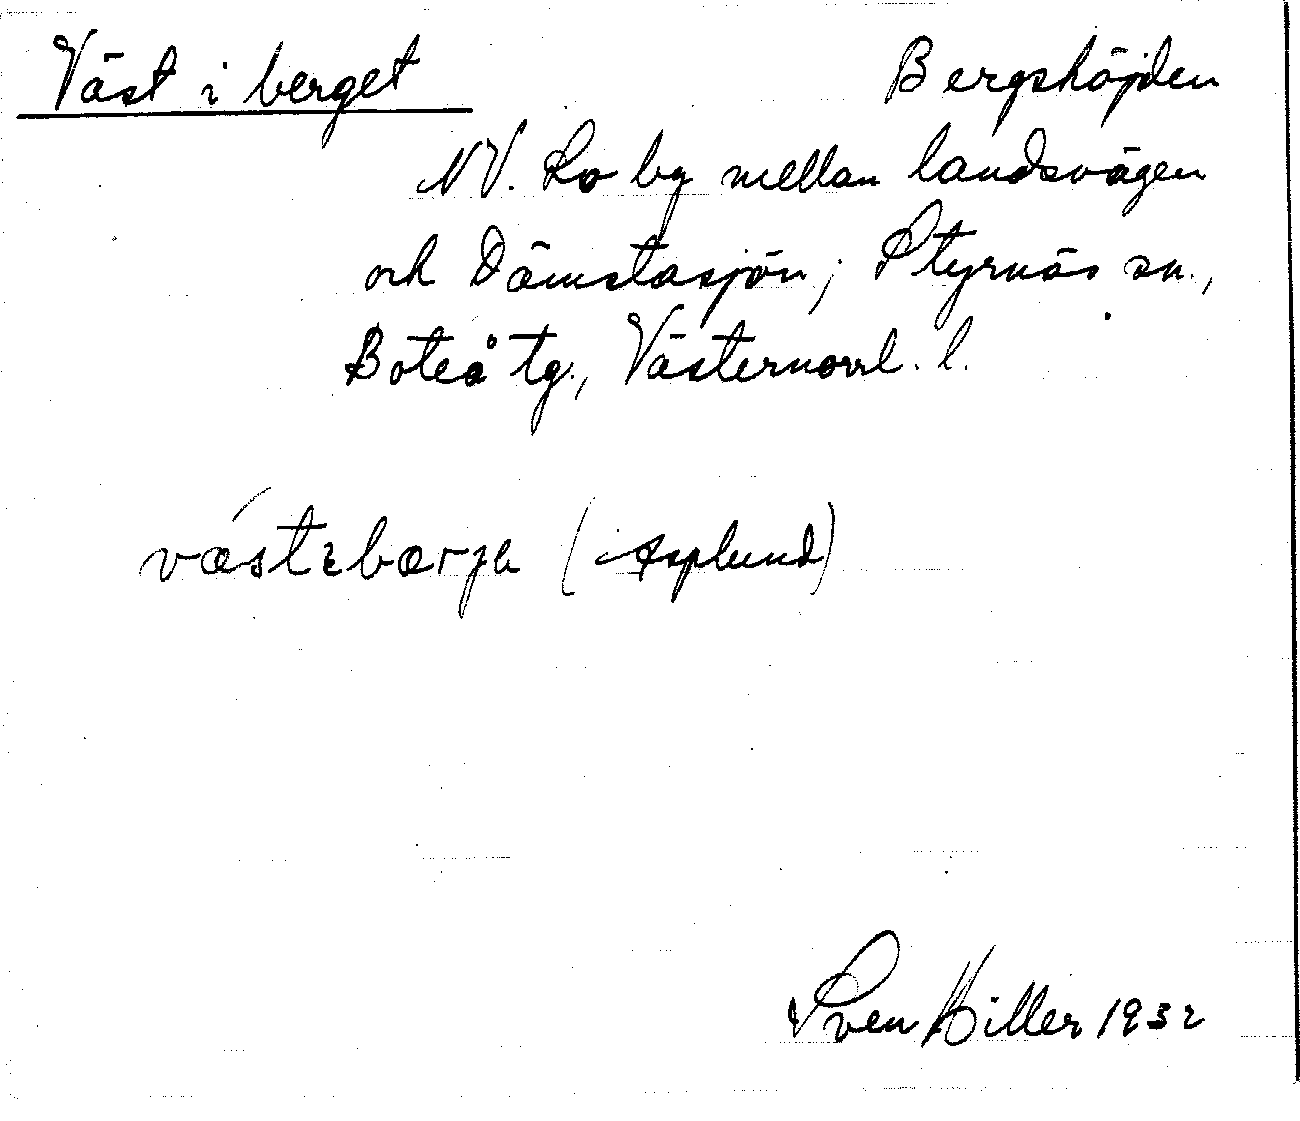 Väst i berget Bergshöjden
NV. Lo by mellan landsvägen
och Dämstasjön; Styrnäs sn.,
Boteå tg., Västernorrl. l.
(Asplund)
Sven Hiller 1932